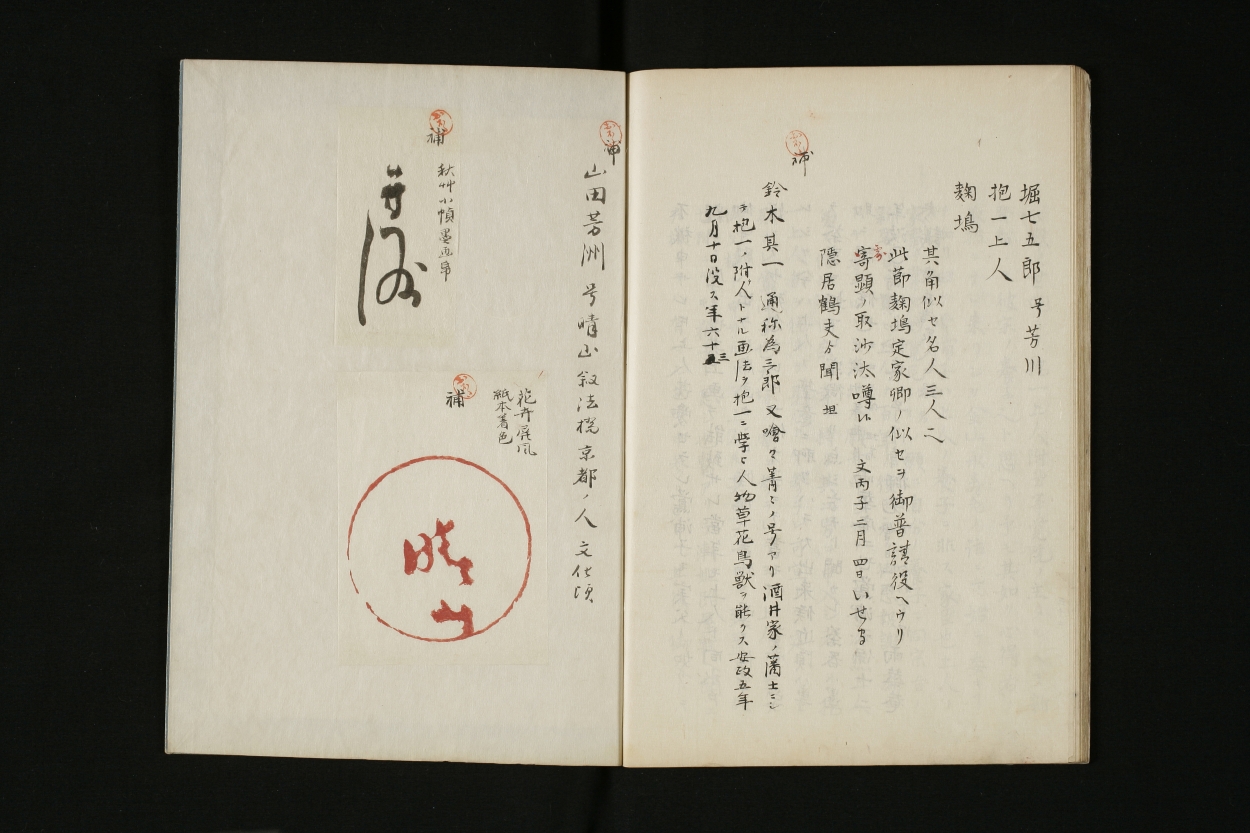 堀七五郎 号芳川
抱一上人
麹塢
其角似セ名人三人之
此節麹塢定家卿ノ似セヲ御普請役ヘウリ
寄顕ノ取沙汰噂い 文丙子二月四日いせ
隠居鶴夫ゟ聞 坦
補
鈴木其一 通称為三郎 又噲々菁々ノ号アリ酒井家ノ藩士ニシ
テ抱一ノ附人トナル画法ヲ抱一ニ学ヒ人物草花鳥獣ヲ能クス安政五年
九月十日没ス年六十三
補
山田芳洲 号晴山叙法橋京都ノ人 文化頃
補
秋艸小幀墨画帛
芳
補
花卉屏風
紙本着色
晴山